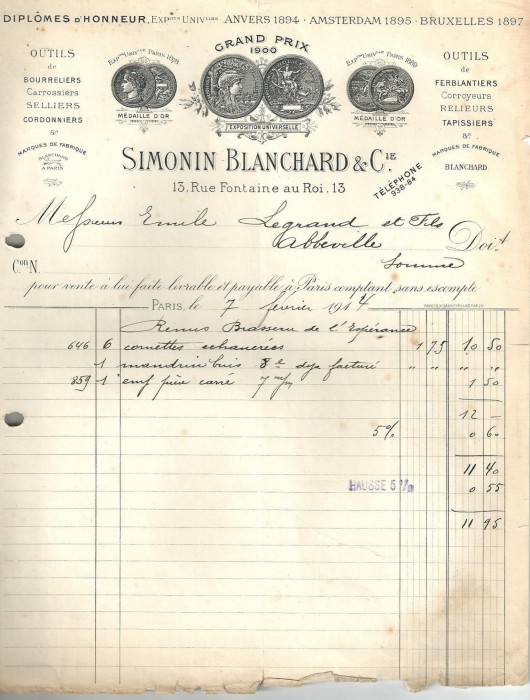 DIPLÔMES D'HONNEUR, EXPons UNIVlles ANVERS 1894 · AMSTERDAM 1895 · BRUXELLES 1897
GRAND PRIX
1900
EXPon UNIVlle PARIS 1878
EXPon UNIVlle PARIS 1900
MÉDAILLE D'OR
EXPOSITION UNIVERSELLE
MÉDAILLE D'OR
OUTILS
de
BOURRELIERS
Carrossiers
SELLIERS
CORDONNIERS
&ª
MARQUES DE FABRIQUE
BLANCHARD
A PARIS
OUTILS
de
FERBLANTIERS
Corroyeurs
RELIEURS
TAPISSIERS
&ª
MARQUES DE FABRIQUE
BLANCHARD
SIMONIN BLANCHARD & CIE
13, Rue Fontaine au Roi, 13
TÉLÉPHONE
938-84
Messieurs Emile Legrand et Fils
Abbeville Doit
Somme
Con N.
pour vente à lui faite livrable et payable à Paris comptant sans escompte
Paris, le 7 février 1914
Remus Brasserie de l'Espérance
646 6 cornettes echancrées 1 75 10 50
1 mandrin buis 8e deja facturé " " " "
859 1 emp pièce carré 7 m/m 1 50
12 –
5% 0 60
11 40
HAUSSE 5 % 0 55
11 95